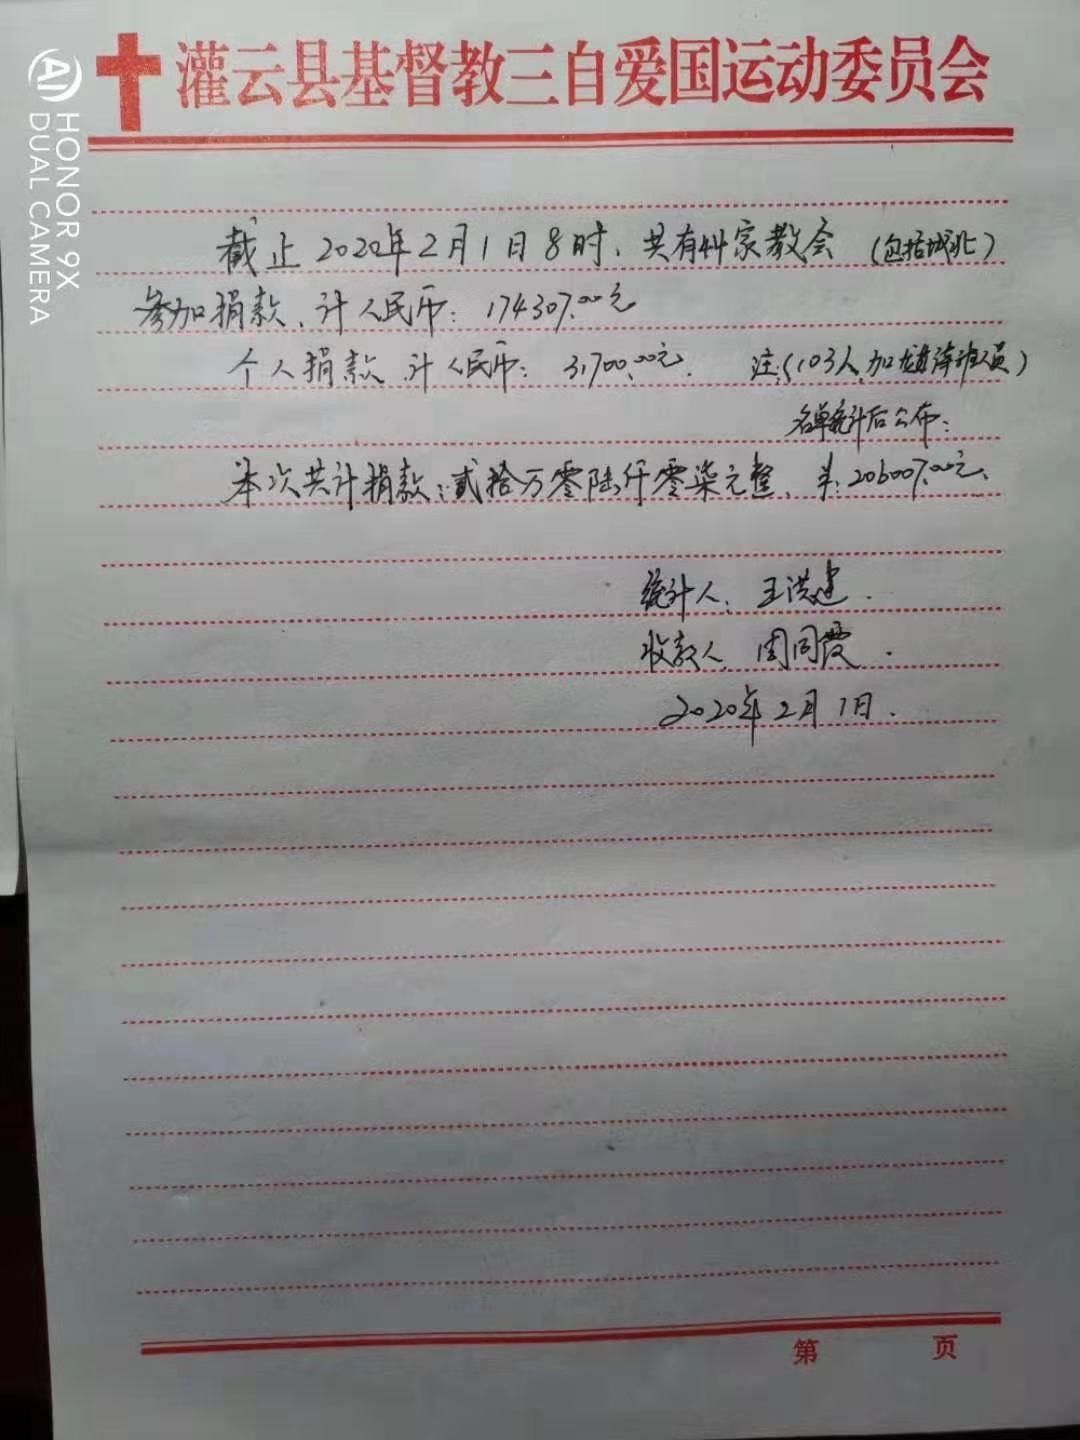 灌云县基督教三自爱国运动委员会
HONOR 9X
DUAL CAMERA
截止2020年2月1日8时、共有卅家教会(包括城北)
参加捐款、计人民币:174307.00元
个人捐款 计人民币:31700.00元. 注:(103人,加 培人员)
名单统计后公布:
本次共计捐款:贰拾万零陆仟零柒元整、 206007.00元、
统计人、王洪建.
收款人、周同霞.
2020年2月1日.
第 页